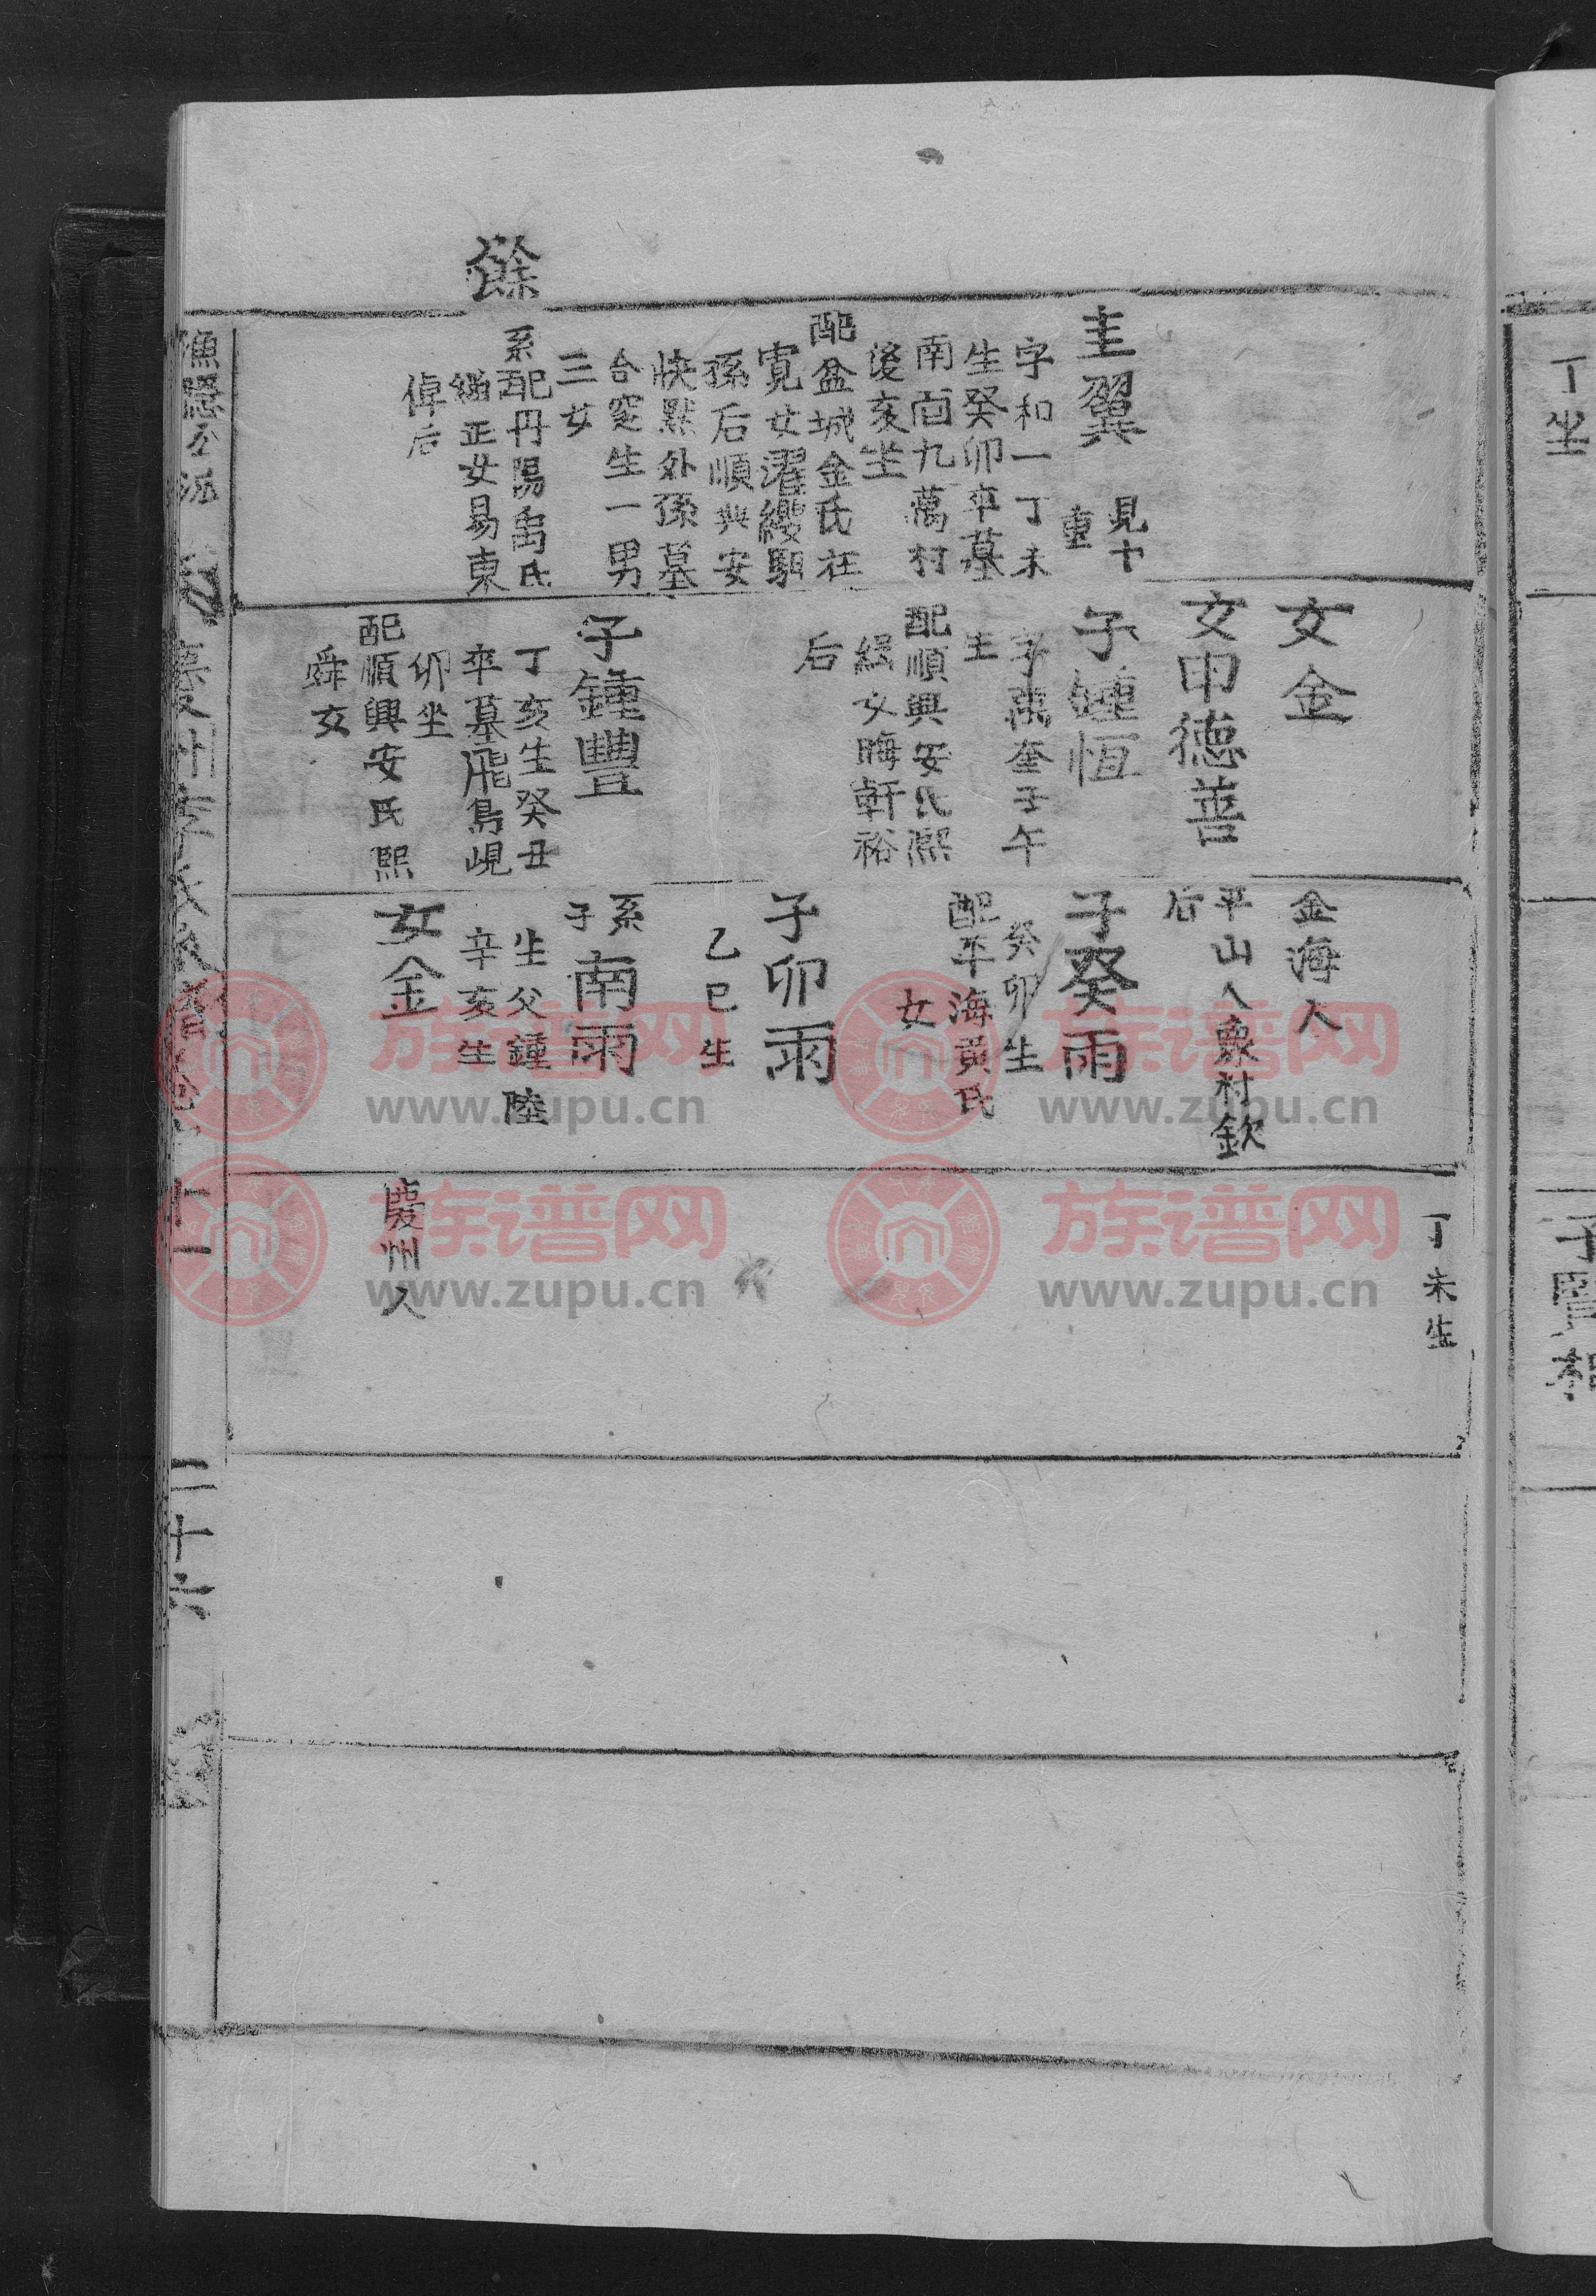 丁坐
子
餘
圭翼
見十
重
字和一丁未
生癸卯卒墓
南面九萬村
後亥坐
配盆城金氏在
寬女濯纓馹
孫后順興安
快默外孫墓
合窆生一男
三女
系配丹陽禹氏
正女易東
倬后
女金
女申德善
子鍾恆
字萬奎壬午
生
配順興安氏熙
女晦軒裕
后
子鍾豐
丁亥生癸丑
卒墓飛鳥峴
卯坐
配順興安氏熙
舜女
金海人
平山人麋村欽
后
子癸雨
癸卯生
配平海黃氏
女
子卯雨
乙巳生
系子南雨
生父鍾陸
辛亥生
女金
丁未生
慶州人
漁隱公派
慶州李氏
二十六
族谱网
www.zupu.cn
族谱网
www.zupu.cn
族谱网
www.zupu.cn
族谱网
www.zupu.cn